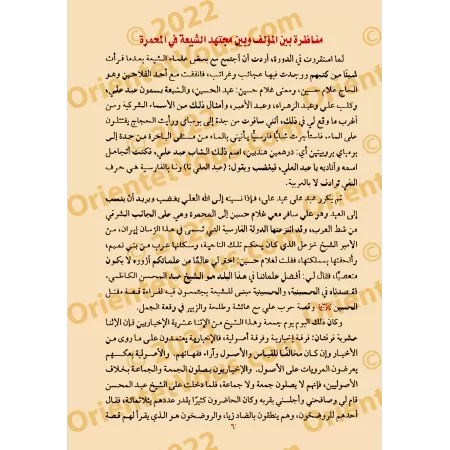 مناظرة بين المؤلف وبين مجتهد الشيعة في المحمرة
لما استقررت في الدورة، أردت أن أجتمع مع بعض علماء الشيعة بعدما قرأت
شيئًا من كتبهم ووجدت فيها عجائب وغرائب، فاتفقت مع أحد الفلاحين وهو
الحاج غلام حسين، ومعنى غلام حسين: عبد الحسين، والشيعة يسمون عبد علي،
وكلب علي وعبد الزهراء، وعبد الأمير، وأمثال ذلك من الأسماء الشركية ومن
أغرب ما وقع لي في ذلك، أنني سافرت من جدة إلى بومباي ورأيت الحجاج يقتتلون
على الماء، فاستأجرت شابًا فارسيًا يأتيني بالماء من مستقى الباخرة من جدة إلى
بومباي بروبيتين أي: درهمين هنديين، اسم ذلك الشاب عبد علي، فكنت أتجاهل
اسمه وأناديه يا عبد العلي، فيغضب ويقول: (عبد العلي نا) ونا بالفارسية هي حرف
النفي ترادف لا بالعربية.
ثم يكرر عبد علي عبد علي، فإذا نسبته إلى الله العلي يغضب ويريد أن ينسب
إلى العبد وهو علي سافر معي غلام حسين إلى المحمرة وهي على الجانب الشرقي
من شط العرب، وقد انتزعتها الدولة الفارسية التي تسمى في هذا الزمان إيران، من
الأمير الشيخ خزعل الذي كان يحكم تلك الناحية، وسكانها عرب من بني تميم،
وألحقتها بمملكتها، فقلت لغلام حسين: اختر لي عالمًا من علمائكم أزوره لا يكون
متعصبًا، فقال لي: أفضل علمائنا في هذا البلد هو الشيخ عبد المحسن الكاظمي،
فقصدناه في الحسينية، والحسينية مبنى للشيعة يجتمعون فيه لقراءة قصة مقتل
الحسين وقصة حرب علي مع عائشة وطلحة والزبير في وقعة الجمل.
وكان ذلك اليوم يوم جمعة وهذا الشيخ من الاثنا عشرية الإخباريين فإن الاثنا
عشرية فرقتان: فرقة إخبارية وفرقة أصولية، فالإخبارية يعتمدون على ما روى من
الأخبار وإن كان مخالفًا للقياس والأصول وآراء فقهائهم. والأصولية بعكسهم
يعرضون المرويات على الأصول. والإخباريون يصلون الجمعة والجماعة بخلاف
الأصوليين، فإنهم لا يصلون جمعة ولا جماعة، فلما دخلت على الشيخ عبد المحسن
قام لي وصافحني وأجلسني بقربه وكان الحاضرون كثيرًا يقدر عددهم بثلاثمائة، فقال
أحدهم للروضخون، وهم ينطقون بالضاد زيا، والروضخون هو الذي يقرأ لهم قصة
٦
© 2022
OrientetVous.com